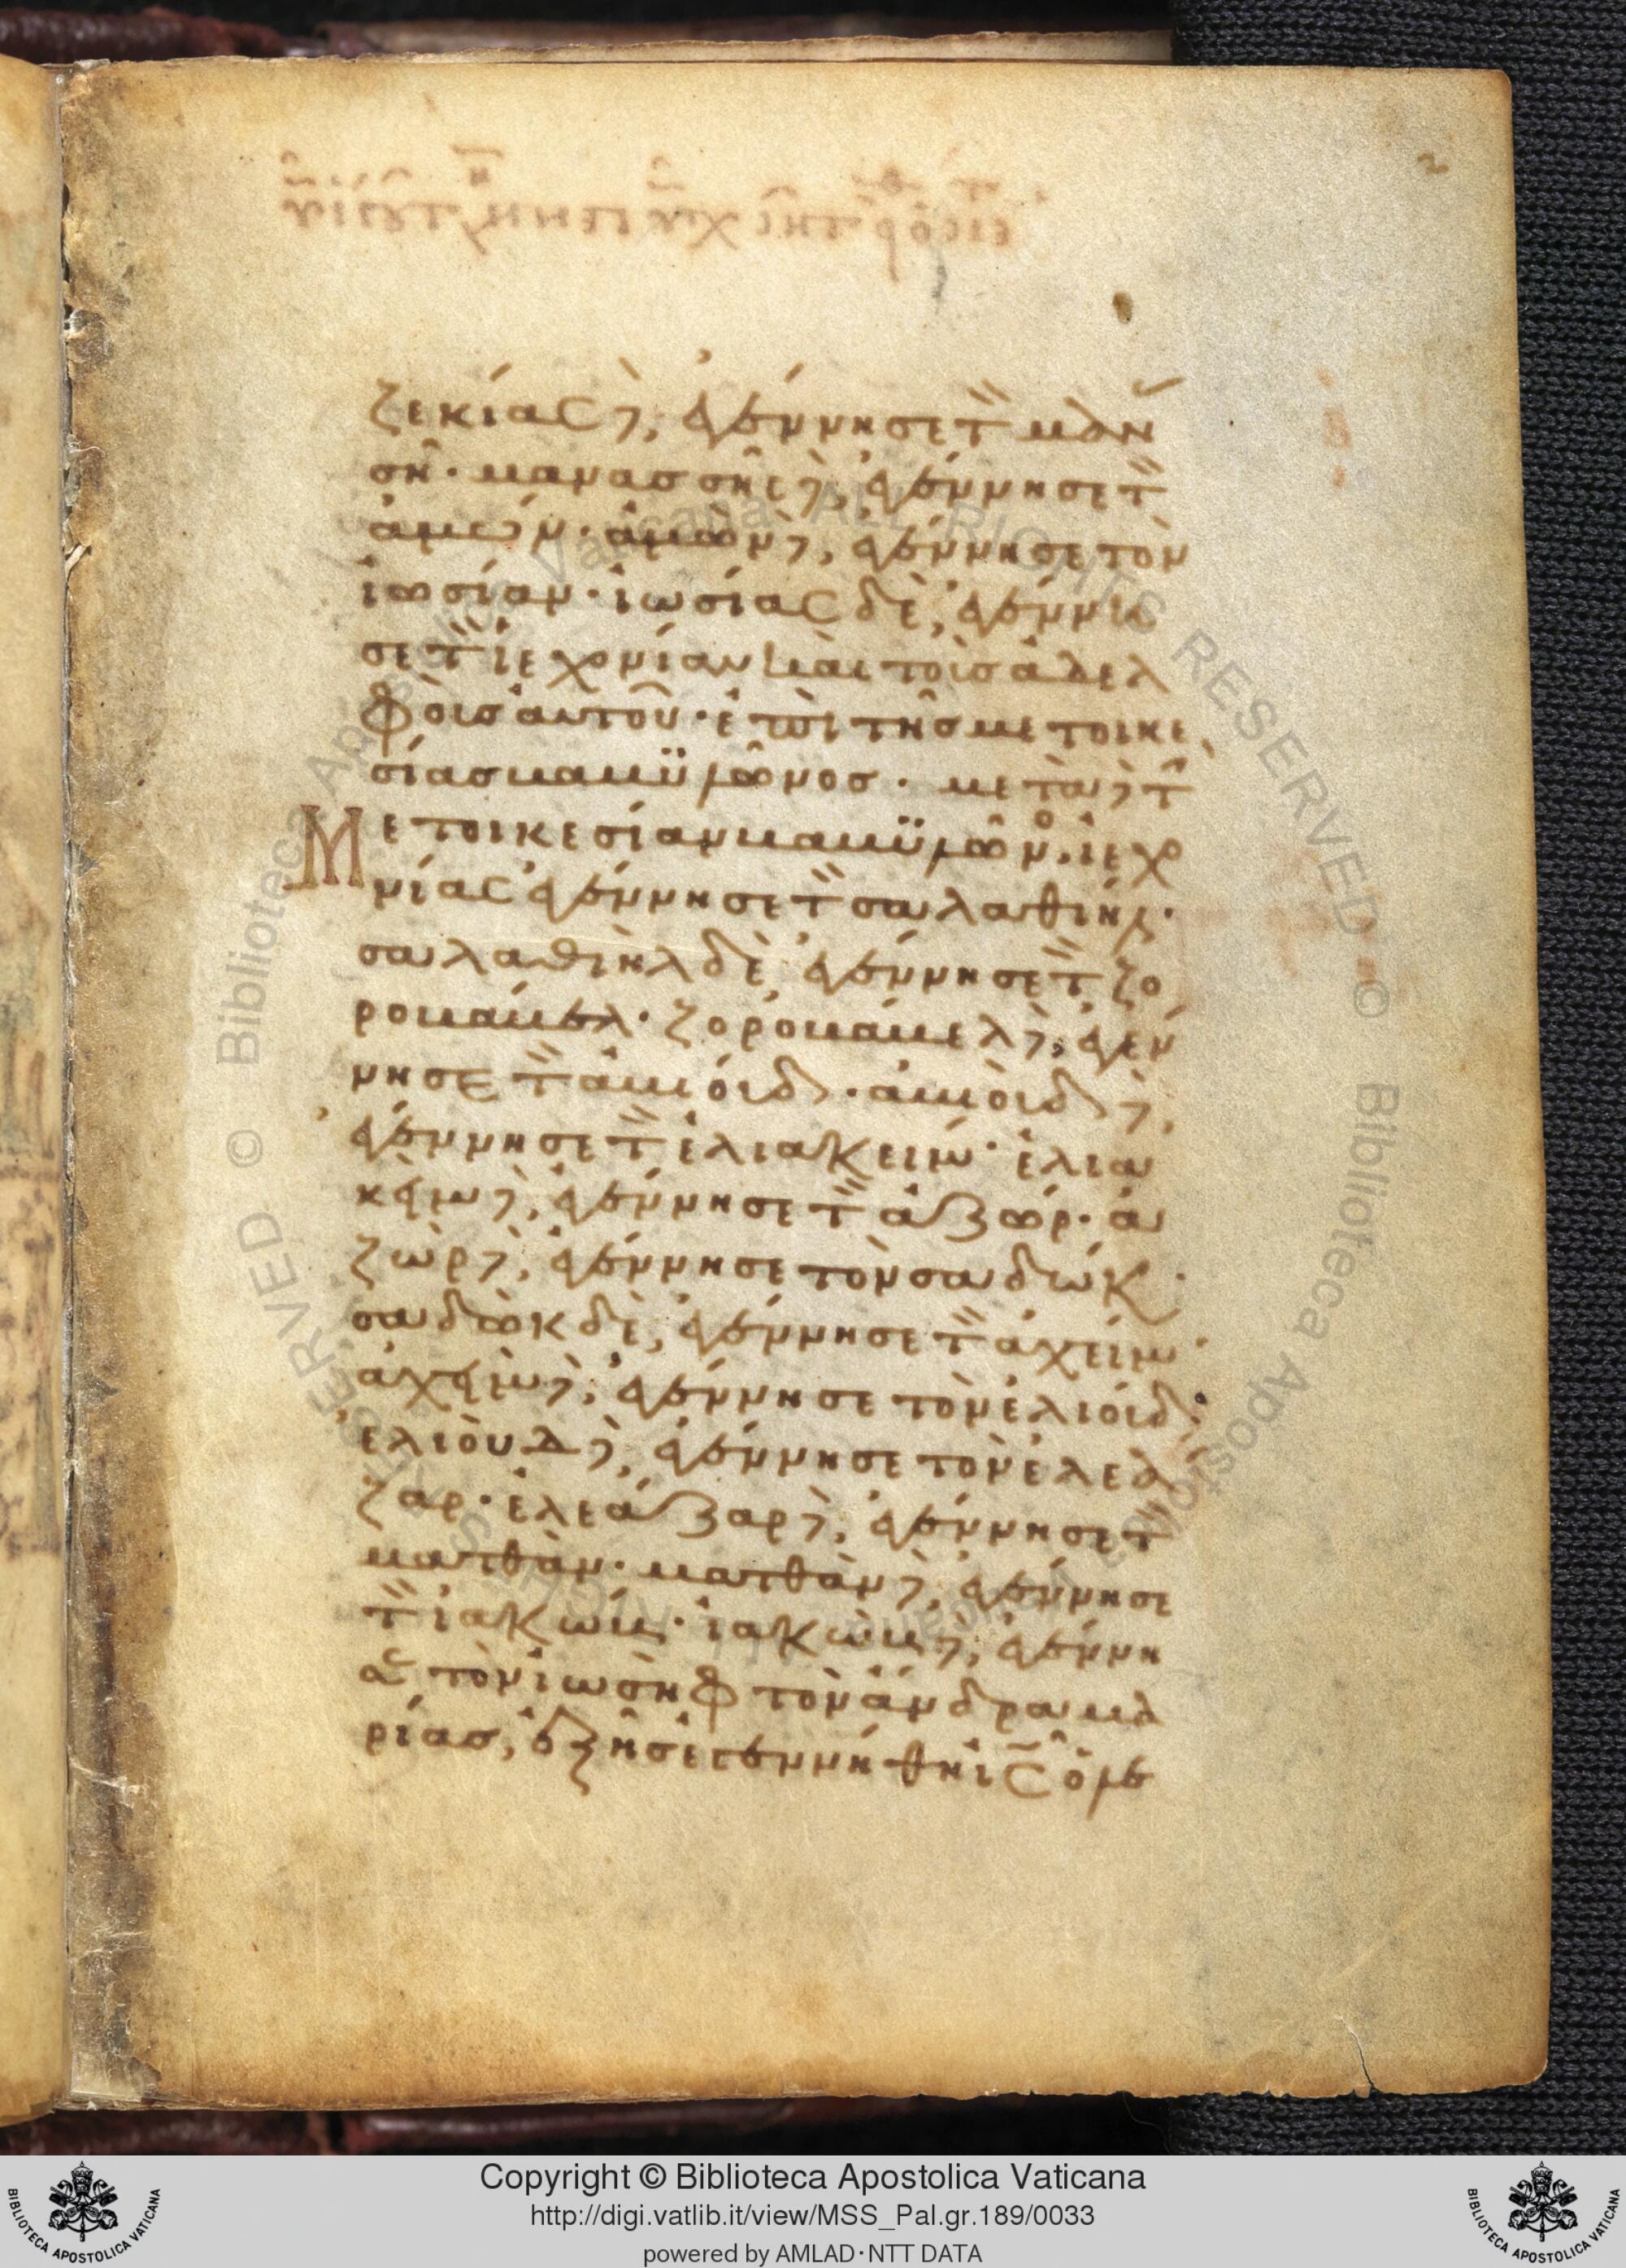 ζεκίας δὲ, ἐγέννησε τὸν μανασ
σῆ· μανασσῆς δὲ, ἐγέννησε τὸν
ἀμών· ἀμὼν δὲ, ἐγέννησε τὸν
ἰωσίαν· ἰωσίας δὲ, ἐγέννη
σε τὸν ἰεχονίαν καὶ τοὺς ἀδελ
φοὺς αὐτοῦ· ἐπὶ τῆς μετοικε
σίας βαβυλῶνος· μετὰ δὲ τὴν
Μετοικεσίαν βαβυλῶνος, ἰεχο
νίας ἐγέννησε τὸν σαλαθιήλ·
σαλαθιὴλ δὲ, ἐγέννησε τὸν ζο
ροβάβελ· ζοροβάβελ δὲ, ἐγέν
νησε τὸν ἀβιούδ· ἀβιοὺδ δὲ,
ἐγέννησε τὸν ἐλιακείμ· ἐλια
κεὶμ δὲ, ἐγέννησε τὸν ἀζώρ· ἀ
ζὼρ δὲ, ἐγέννησε τὸν σαδώκ·
σαδὼκ δὲ, ἐγέννησε τὸν ἀχείμ·
ἀχεὶμ δὲ, ἐγέννησε τὸν ἐλιούδ·
ἐλιοὺδ δὲ, ἐγέννησε τὸν ἐλεά
ζαρ· ἐλεάζαρ δὲ, ἐγέννησε τὸν
ματθάν· ματθὰν δὲ, ἐγέννησε
τὸν ἰακώβ· ἰακὼβ δὲ, ἐγέννη
σε τὸν ἰωσὴφ τὸν ἄνδρα μα
ρίας, ἐξ ἧς ἐγεννήθη ις ὁ λε
2
Copyright © Biblioteca Apostolica Vaticana
http://digi.vatlib.it/view/MSS_Pal.gr.189/0033
powered by AMLAD·NTT DATA
BIBLIOTECA APOSTOLICA VATICANA
BIBLIOTECA APOSTOLICA VATICANA